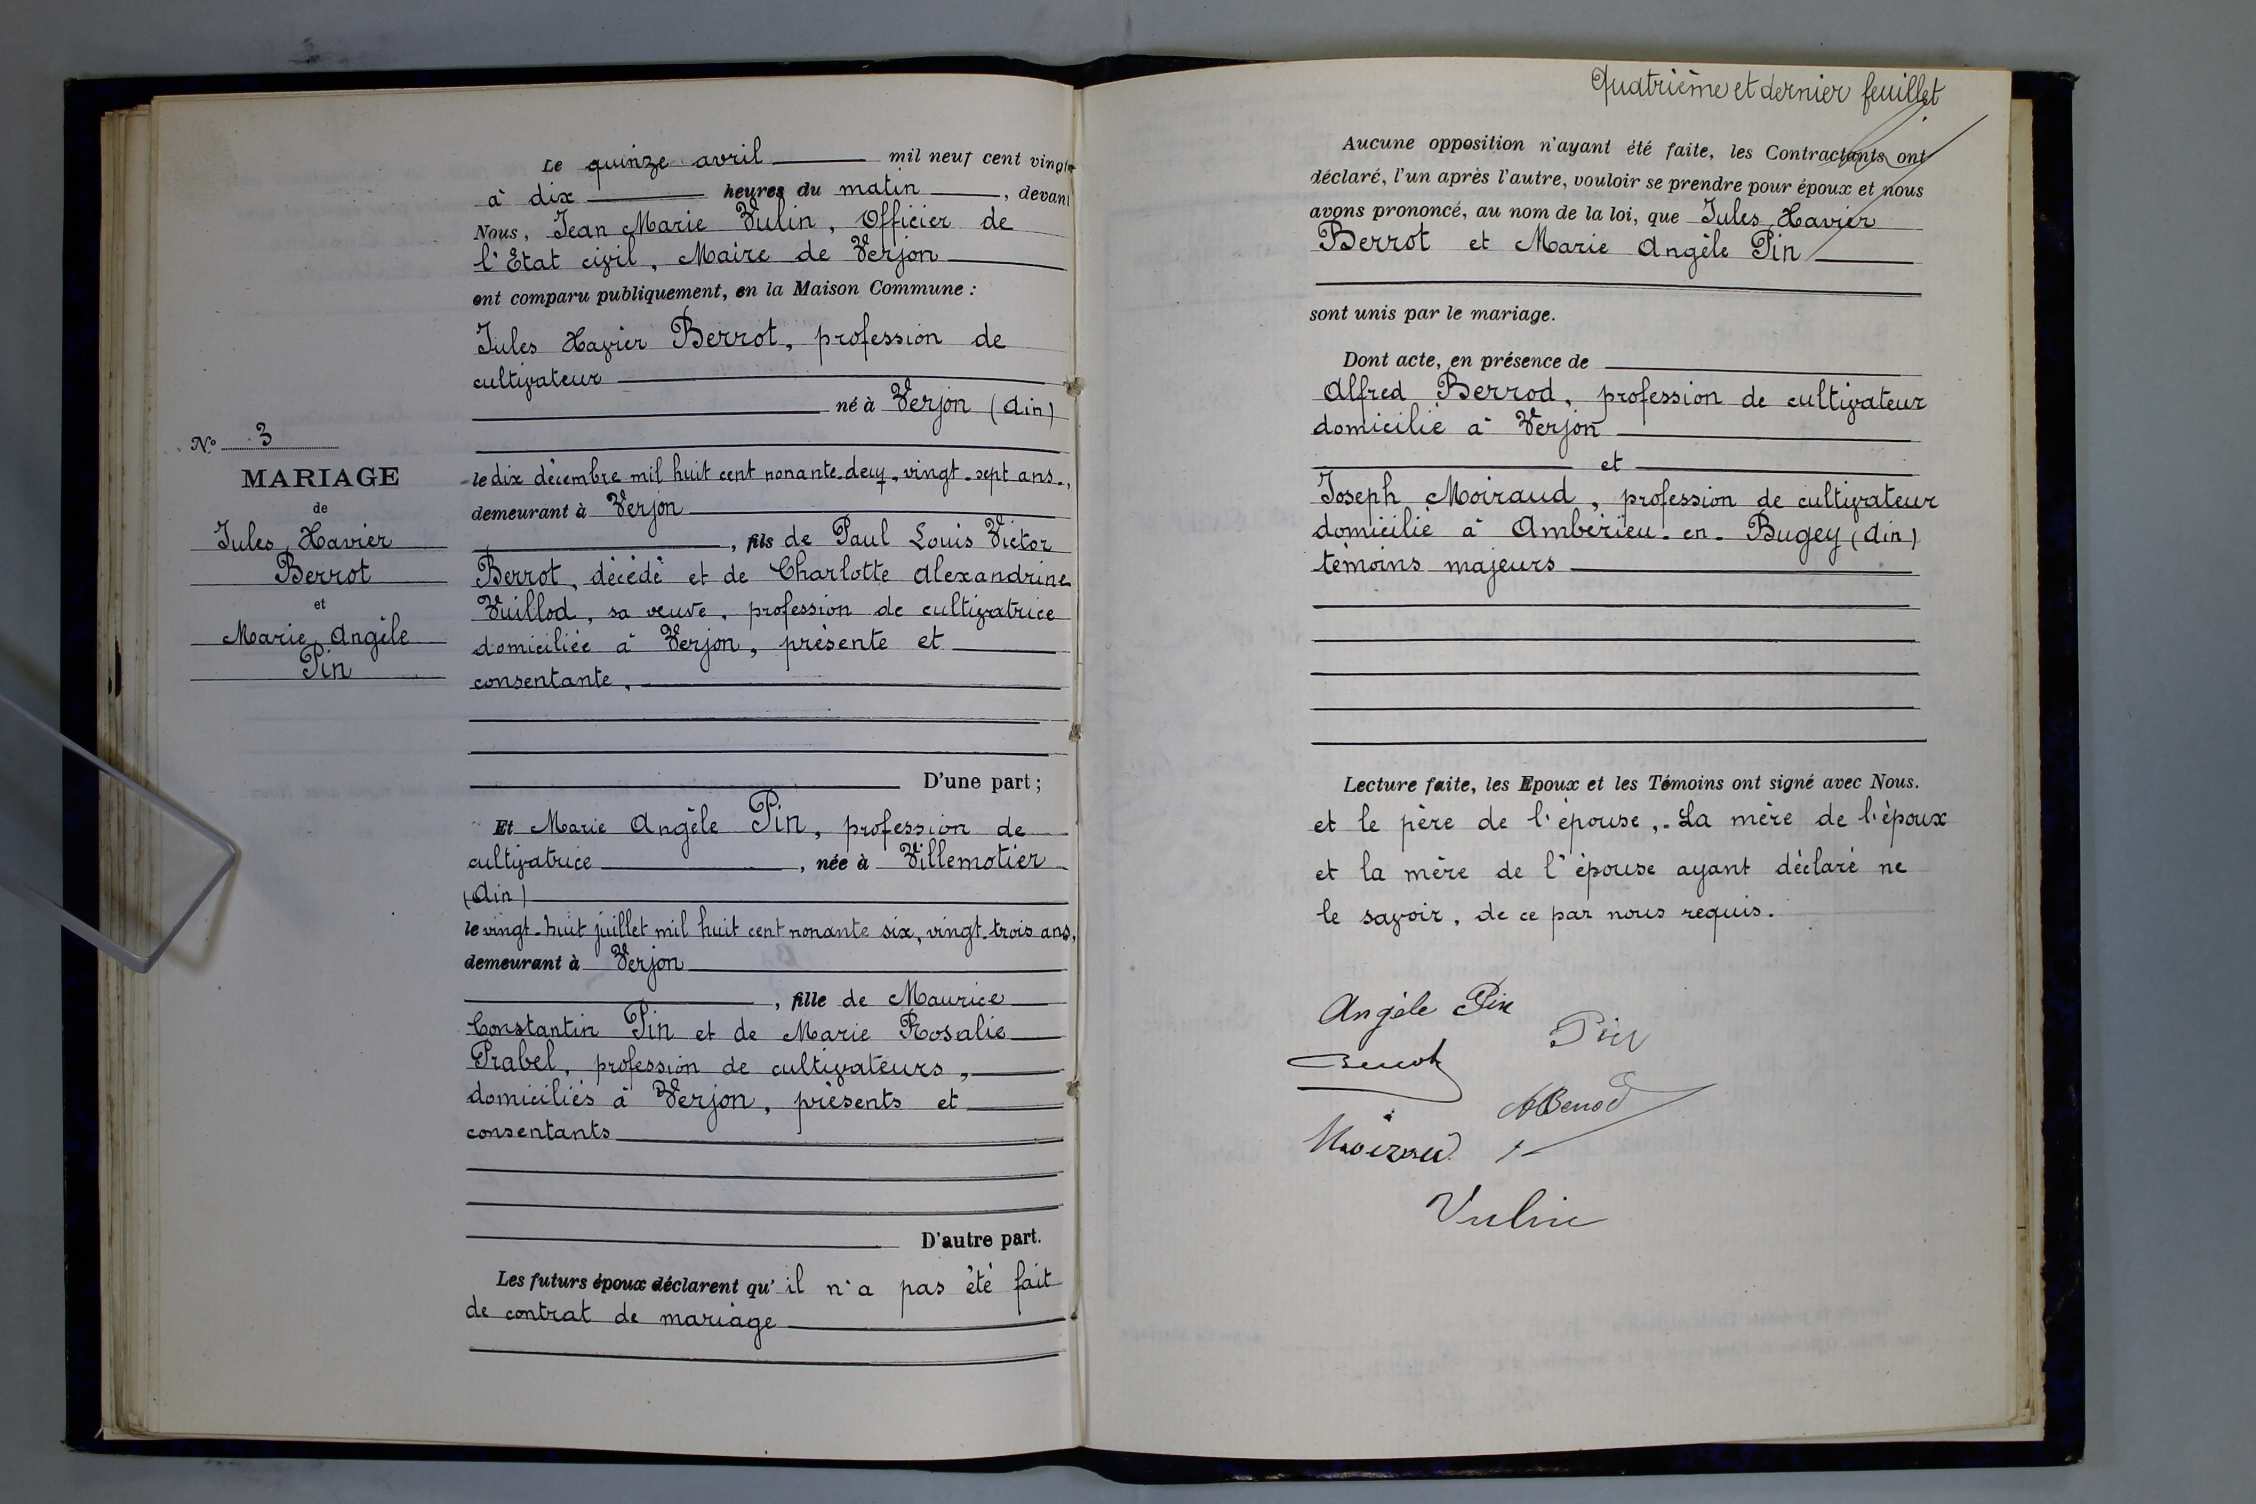 Le quinze avril mil neuf cent vingt
à dix heures du matin, devant
Nous, Jean Marie Vulin, Officier de
l'Etat civil, Maire de Verjon
ont comparu publiquement, en la Maison Commune :
Jules Xavier Berrot, profession de
cultivateur
né à Verjon (Ain)
le dix décembre mil huit cent nonante-deux, vingt-sept ans,
demeurant à Verjon
, fils de Paul Louis Victor
Berrot, décédé et de Charlotte Alexandrine
Vuillod, sa veuve, profession de cultivatrice
domiciliée à Verjon, présente et
consentante,
D'une part ;
Et Marie Angèle Pin, profession de
cultivatrice, née à Villemotier
(Ain)
le vingt-huit juillet mil huit cent nonante six, vingt-trois ans,
demeurant à Verjon
, fille de Maurice
Constantin Pin et de Marie Rosalie
Prabel, profession de cultivateurs,
domiciliés à Verjon, présents et
consentants
D'autre part.
Les futurs époux déclarent qu'il n'a pas été fait
de contrat de mariage
N° 3
MARIAGE
de
Jules Xavier
Berrot
et
Marie Angèle
Pin
Quatrième et dernier feuillet
Aucune opposition n'ayant été faite, les Contractants ont
déclaré, l'un après l'autre, vouloir se prendre pour époux et nous
avons prononcé, au nom de la loi, que Jules Xavier
Berrot et Marie Angèle Pin
sont unis par le mariage.
Dont acte, en présence de
Alfred Berrod, profession de cultivateur
domicilié à Verjon
et
Joseph Moiraud, profession de cultivateur
domicilié à Ambérieu-en-Bugey (Ain)
témoins majeurs
Lecture faite, les Epoux et les Témoins ont signé avec Nous.
et le père de l'épouse,. La mère de l'époux
et la mère de l'épouse ayant déclaré ne
le savoir, de ce par nous requis.
Angèle Pin
Pin
Berrot
ABerrod
Moiraud
Vulin